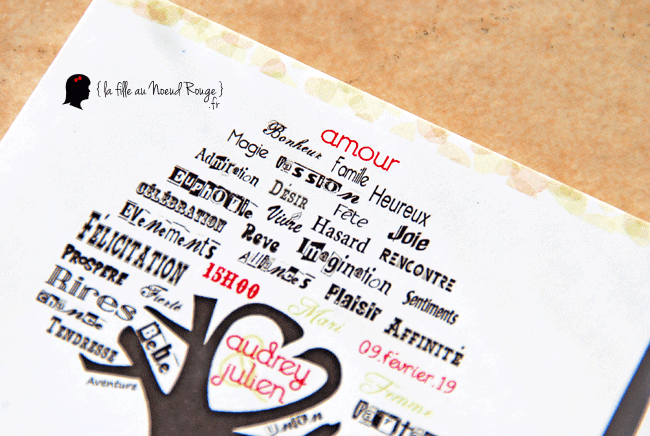 { la fille au Noeud Rouge }
.fr
amour
Bonheur Famille Heureux
Magie PASSION
Admiration DÉSIR Fête Joie
EUPHORIE Vivre Hasard RENCONTRE
CÉLÉBRATION Reve Imagination Sentiments
Evenements Alliances Plaisir AFFINITÉ
FÉLICITATION 15H00
PROSPERE Fierté Mari 09.février.19
Rires Bébé Femme
TENDRESSE
Aventure
audrey
&
julien
UNION